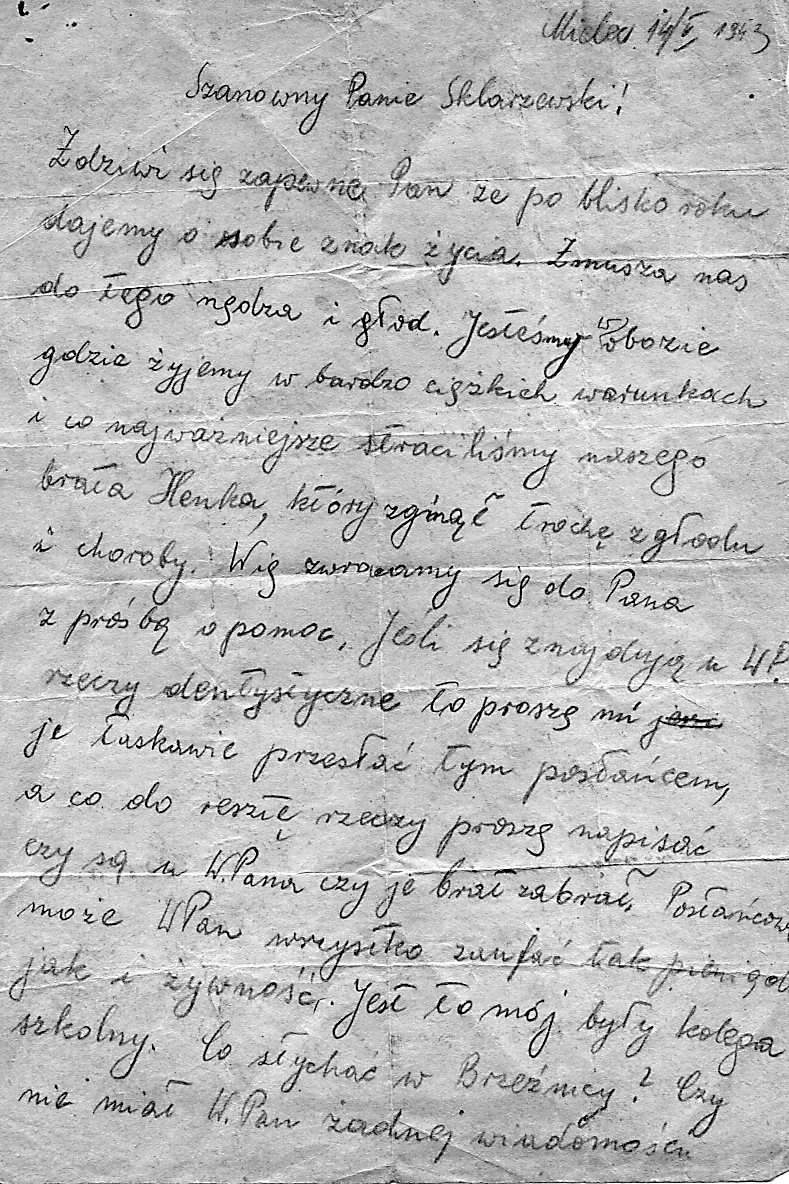 Mielec 14/V 1943
Szanowny Panie Sklarzewski!
Zdziwi się zapewne Pan ze po blisko roku
dajemy o sobie znak życia. Zmusza nas
do tego nędza i głod. Jesteśmy w obozie
gdzie żyjemy w bardzo ciężkich warunkach
i co najważniejsze straciliśmy naszego
brata Henka, który zginął trochę z głodu
i choroby. Wię zwracamy się do Pana
z prośbą o pomoc. Jeśli się znajdują u W.P.
rzeczy dentystyczne to proszę mi
je łaskawie przesłać tym posłańcem,
a co do resztę rzeczy proszę napisać
czy są u W.Pana czy je brat zabrał. Posłańcow
może WPan wszystko zaufać tak pienięd
jak i żywność. Jest to mój były kolega
szkolny. Co słychać w Brzeźnicy? Czy
nie miał W.Pan żadnej wiadomości